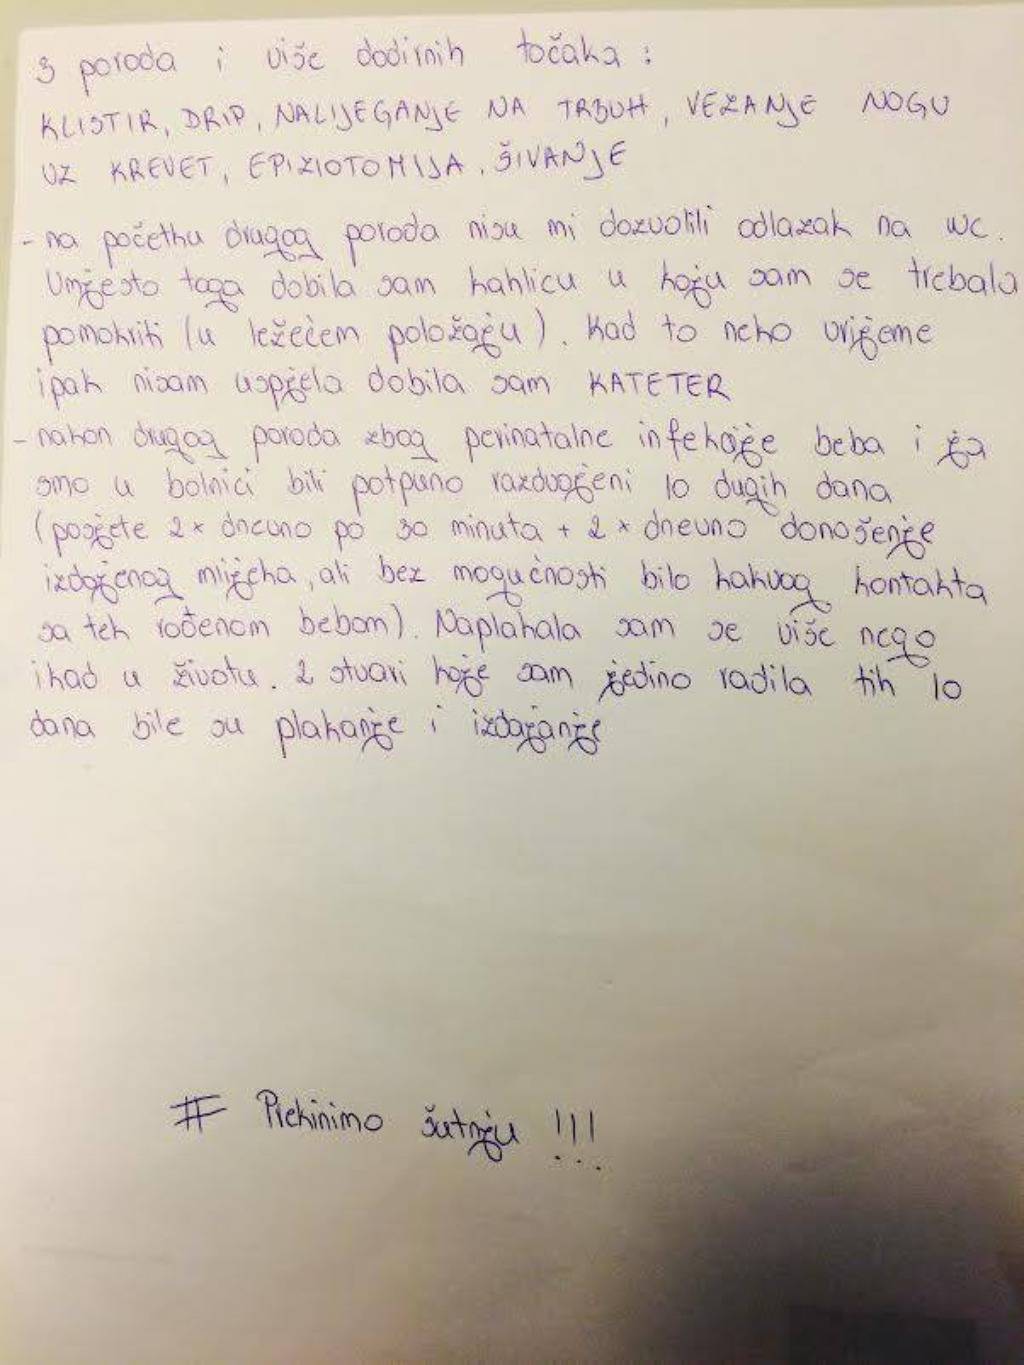 3 poroda i više dodirnih točaka :
KLISTIR, DRIP, NALIJEGANJE NA TRBUH, VEZANJE NOGU
UZ KREVET, EPIZIOTOMIJA, ŠIVANJE
- na početku drugog poroda nisu mi dozvolili odlazak na WC.
Umjesto toga dobila sam kahlicu u koju sam se trebala
pomokriti (u ležećem položaju). Kad to neko vrijeme
ipak nisam uspjela dobila sam KATETER
- nakon drugog poroda zbog perinatalne infekcije beba i ja
smo u bolnici bili potpuno razdvojeni 10 dugih dana
(posjete 2x dnevno po 30 minuta + 2x dnevno donošenje
izdojenog mlijeka, ali bez mogućnosti bilo kakvog kontakta
sa tek rođenom bebom). Naplakala sam se više nego
ikad u životu. 2 stvari koje sam jedino radila tih 10
dana bile su plakanje i izdajanje
# Prekinimo šutnju !!!